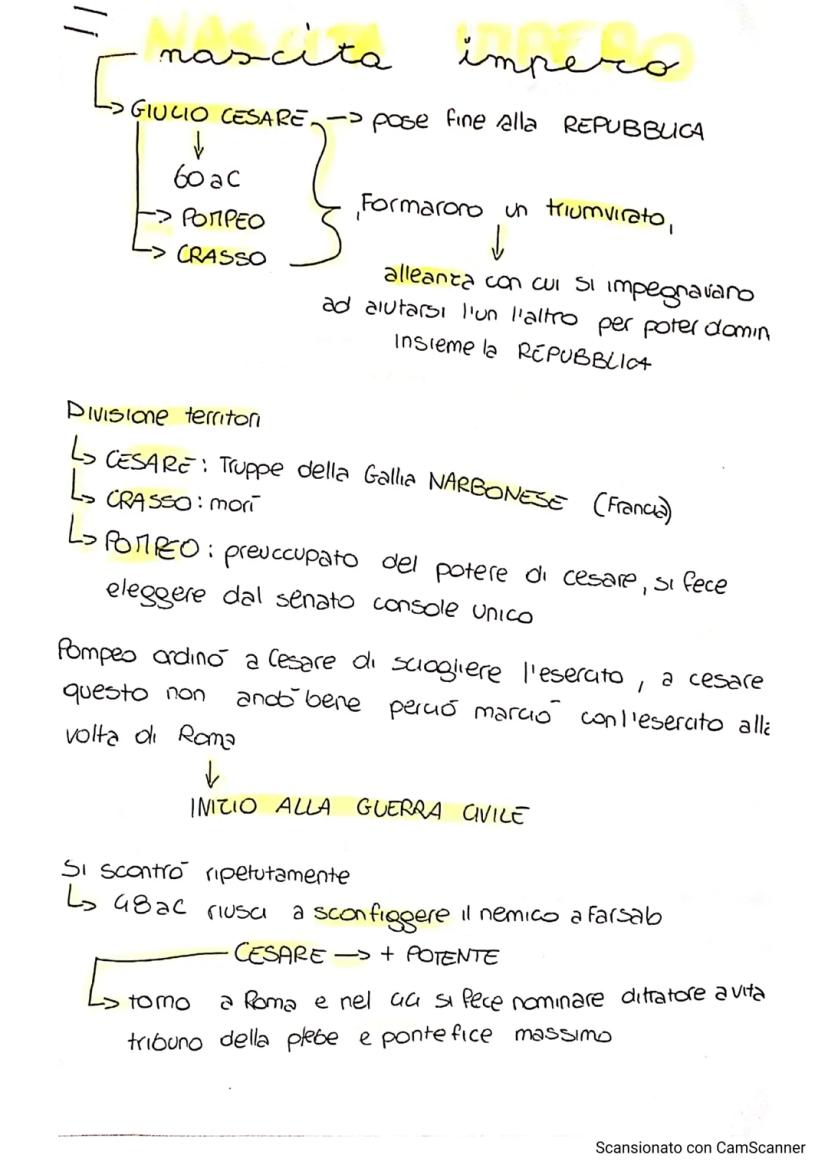 nascita impero
GIULIO CESARE -> pose fine alla REPUBBLICA
60 aC
-> POMPEO
-> CRASSO
Formarono un triumvirato,
alleanza con cui si impegnavano
ad aiutarsi l'un l'altro per poter domin
insieme la REPUBBLICA
Divisione territori
CESARE: Truppe della Gallia NARBONESE (Francia)
CRASSO: morì
POMPEO: preuccupato del potere di cesare, si fece
eleggere dal senato console unico
Pompeo ordinò a Cesare di sciogliere l'esercito, a cesare
questo non andò bene perciò marciò con l'esercito alla
volta di Roma
INIZIO ALLA GUERRA CIVILE
Si scontrò ripetutamente
48 aC riuscì a sconfiggere il nemico a Farsalo
CESARE -> + POTENTE
tornò a Roma e nel 44 si fece nominare dittatore a vita
tribuno della plebe e pontefice massimo
Scansionato con CamScanner